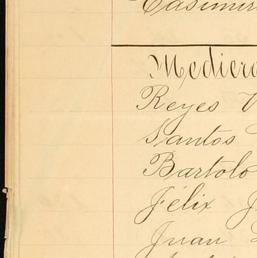 Casimir
Mediero
Reyes V
Santos
Bartolo
Félix J
Juan